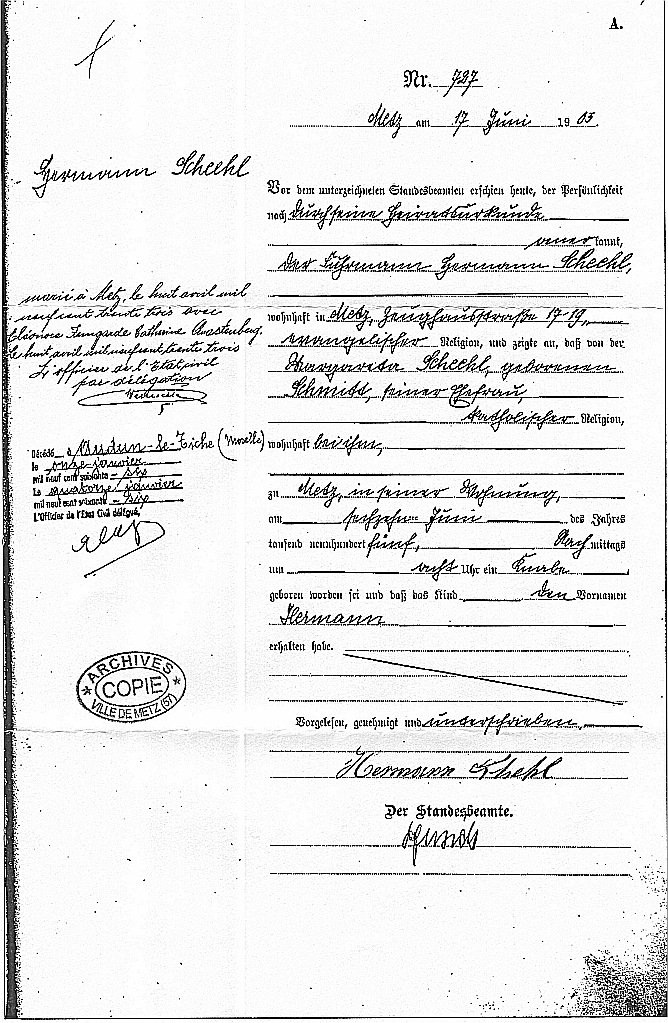 A.
Nr. 727
Metz am 17 Juni 1905.
Hermann Scheehl
Vor dem unterzeichneten Standesbeamten erschien heute, der Persönlichkeit
nach durch seine Heiratsurkunde
anerkannt,
der Fuhrmann Hermann Scheehl,
wohnhaft in Metz, Zeughausstraße 17-19,
evangelischer Religion, und zeigte an, daß von der
Margareta Scheehl, geborenen
Schmitt, seiner Ehefrau,
katholischer Religion,
wohnhaft bei ihm,
zu Metz, in seiner Wohnung,
am sechzehn Juni des Jahres
tausend neunhundert fünf, Nachmittags
um acht Uhr ein Knabe
geboren worden sei und daß das Kind den Vornamen
Hermann
erhalten habe.
Vorgelesen, genehmigt und unterschrieben,
Hermann Scheehl
Der Standesbeamte.
marié à Metz, le huit avril mil
neufcent trente trois avec
Eléonore Catherine
le huit avril mil neufcent trente trois
L'officier de l'Etat civil
par délégation
Décédé à Audun-le-Tiche (Moselle)
le onze janvier
mil neuf cent soixante-six
Le quatorze janvier
mil neuf cent soixante-six
L'Officier de l'Etat Civil délégué,
ARCHIVES
COPIE
VILLE DE METZ (57)